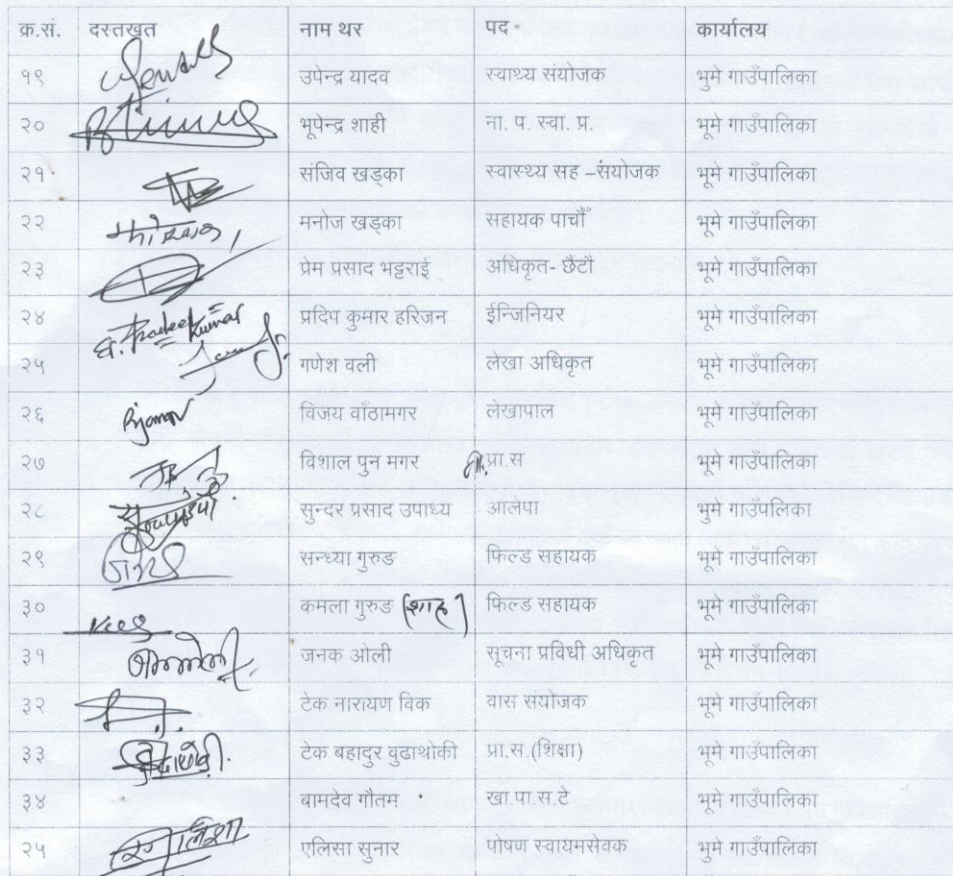 क्र.सं. दस्तखत नाम थर पद कार्यालय
१९ उपेन्द्र यादव स्वाथ्य संयोजक भूमे गाउँपालिका
२० भूपेन्द्र शाही ना. प. स्वा. प्र. भूमे गाउँपालिका
२१ संजिव खड्का स्वास्थ्य सह –संयोजक भूमे गाउँपालिका
२२ मनोज खड्का सहायक पाचौँ भूमे गाउँपालिका
२३ प्रेम प्रसाद भट्टराई अधिकृत- छैटौ भूमे गाउँपालिका
२४ Pradeep Kumar प्रदिप कुमार हरिजन ईन्जिनियर भूमे गाउँपालिका
२५ गणेश वली लेखा अधिकृत भूमे गाउँपालिका
२६ विजय वाँठामगर लेखापाल भूमे गाउँपालिका
२७ विशाल पुन मगर प्रा.स भूमे गाउँपालिका
२८ सुन्दर प्रसाद उपाध्य आलेपा भुमे गाउँपलिका
२९ सन्ध्या गुरुङ फिल्ड सहायक भूमे गाउँपालिका
३० कमला गुरुङ (शाह) फिल्ड सहायक भूमे गाउँपालिका
३१ जनक ओली सूचना प्रविधी अधिकृत भूमे गाउँपालिका
३२ टेक नारायण विक वास संयोजक भूमे गाउँपालिका
३३ टेक बहादुर वुढाथोकी प्रा.स.(शिक्षा) भूमे गाउँपालिका
३४ बामदेव गौतम खा.पा.स.टे भूमे गाउँपालिका
२५ एलिसा सुनार पोषण स्वायमसेवक भुमे गाउँपालिका